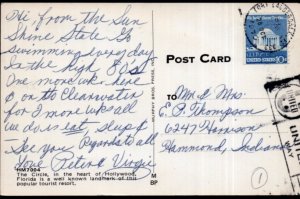 Hi, from the Sun
Shine State Is
swimming every day
In the high 80's
One more wk. here
on to Clearwater
for 1 more wk all
we do is eat, sleep
See you Regards to all
Love Pete & Virgie
HM7004
The Circle, in the heart of Hollywood,
Florida is a well known landmark of this
popular tourist resort.
M
BP
MURPHY BROS. PRESS
POST CARD
TO
Mr. & Mrs.
E. P. Thompson
6247 Harrison
Hammond, Indiana
FORT LAUDERDALE
UNITED STATES 10c
1